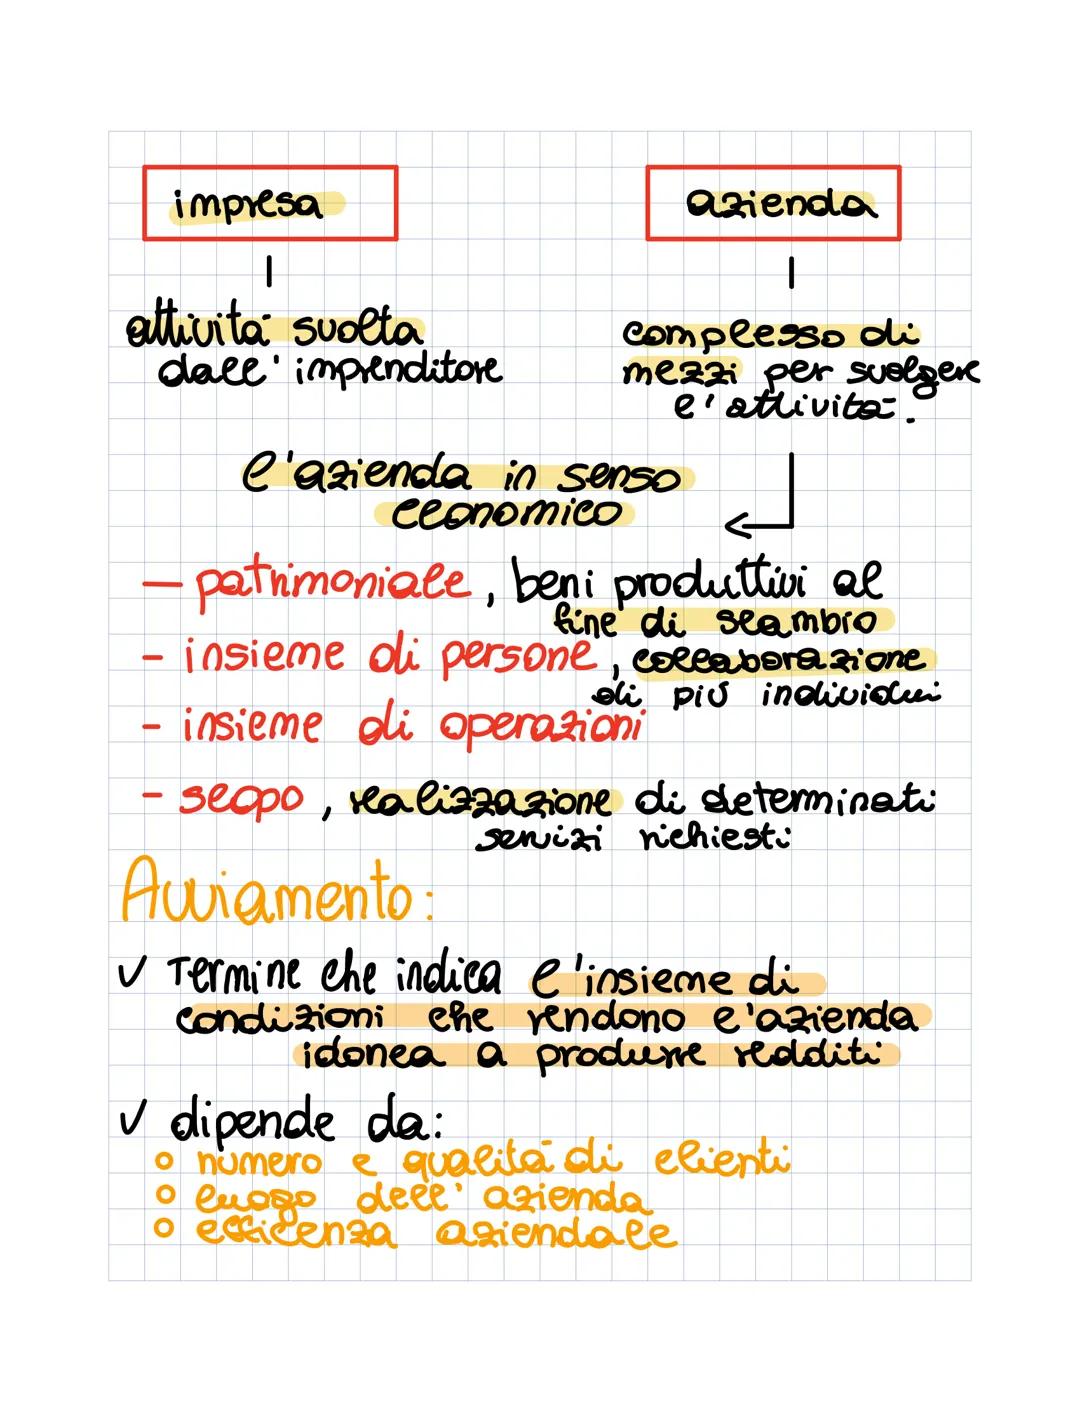 impresa
azienda
attività svolta
dall'imprenditore
complesso di
mezzi per svolgere
l'attività.
l'azienda in senso
economico
— patrimoniale, beni produttivi al
fine di scambio
- insieme di persone, collaborazione
di più individui
- insieme di operazioni
- scopo, realizzazione di determinati
servizi richiesti
Avviamento:
✓ Termine che indica l'insieme di
condizioni che rendono l'azienda
idonea a produrre redditi
✓ dipende da:
○ numero e qualità di clienti
○ luogo dell'azienda
○ efficenza aziendale